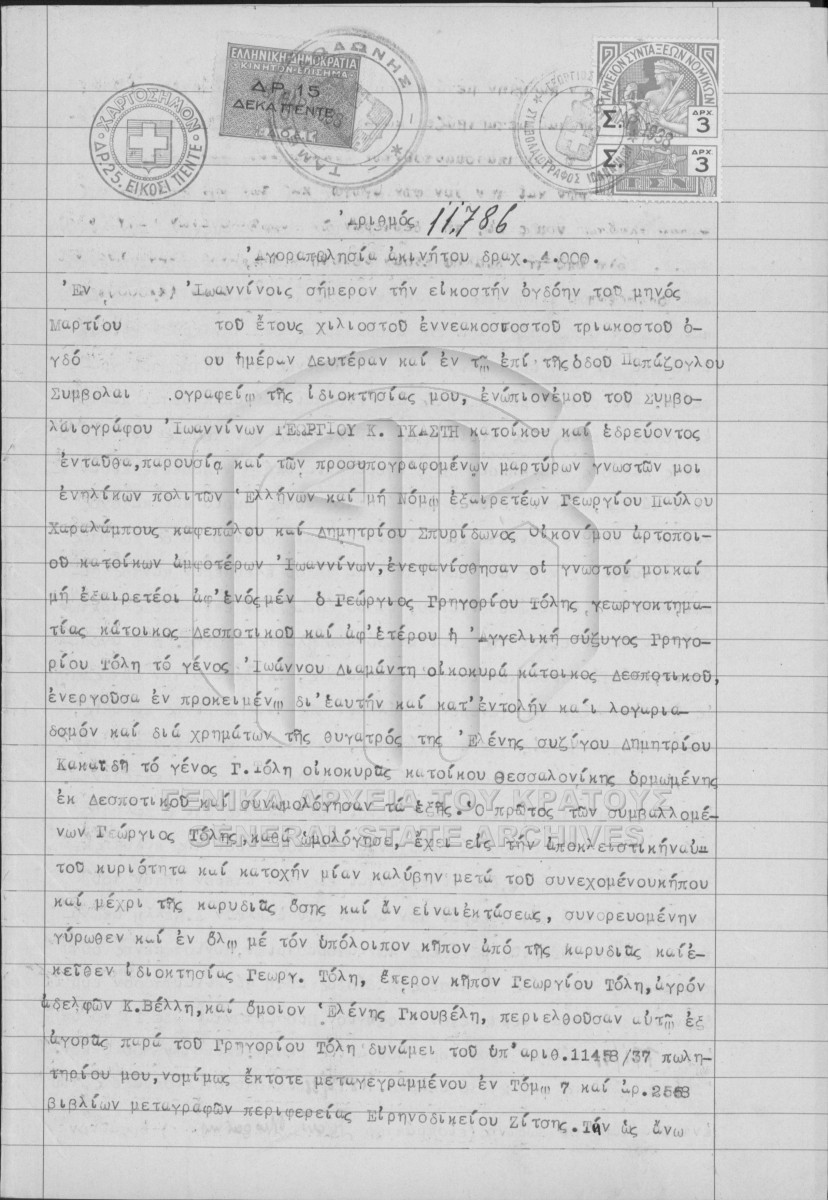 ΧΑΡΤΟΣΗΜΟΝ
ΔΡ25. ΕΙΚΟΣΙ ΠΕΝΤΕ
ΕΛΛΗΝΙΚΗ ΔΗΜΟΚΡΑΤΙΑ
ΚΙΝΗΤΟΝ ΕΠΙΣΗΜΑ
ΔΡ. 15
ΔΕΚΑΠΕΝΤΕ
ΤΑΜΕΙΟΝ ΣΥΝΤΑΞΕΩΝ ΝΟΜΙΚΩΝ
Σ. ΔΡΧ. 3
Σ. ΔΡΧ. 3
Ἀριθμός 11.786
Ἀγοραπωλησία ἀκινήτου δραχ. 4.000.
Ἐν Ἰωαννίνοις σήμερον τήν εἰκοστήν ὀγδόην τοῦ μηνός
Μαρτίου τοῦ ἔτους χιλιοστοῦ ἐννεακοστοστοῦ τριακοστοῦ ὀ-
γδό ου ἡμέραν Δευτέραν καί ἐν τῷ ἐπί τῆς ὁδοῦ Παπάζογλου
Συμβολαι ογραφείῳ τῆς ἰδιοκτησίας μου, ἐνώπιονἐμοῦ τοῦ Συμβο-
λαιογράφου Ἰωαννίνων ΓΕΩΡΓΙΟΥ Κ. ΓΚΑΣΤΗ κατοίκου καί ἑδρεύοντος
ἐνταῦθα, παρουσίᾳ καί τῶν προσυπογραφομένων μαρτύρων γνωστῶν μοι
ἐνηλίκων πολιτῶν Ἑλλήνων καί μή Νόμῳ ἐξαιρετέων Γεωργίου Παύλου
Χαραλάμπους καφεπώλου καί Δημητρίου Σπυρίδωνος Οἰκονόμου ἀρτοποι-
οῦ κατοίκων ἀμφοτέρων Ἰωαννίνων, ἐνεφανίσθησαν οἱ γνωστοί μοικαί
μή ἐξαιρετέοι ἀφ'ἑνόςμέν ὁ Γεώργιος Γρηγορίου Τόλης γεωργοκτημα-
τίας κάτοικος Δεσποτικοῦ καί ἀφ'ἑτέρου ἡ Ἀγγελική σύζυγος Γρηγο-
ρίου Τόλη τό γένος Ἰωάννου Διαμάντη οἰκοκυρά κάτοικος Δεσποτικοῦ,
ἐνεργοῦσα ἐν προκειμένῳ δι'ἑαυτήν καί κατ'ἐντολήν κα'ι λογαρια-
δσμόν καί διά χρημάτων τῆς θυγατρός της Ἑλένης συζύγου Δημητρίου
Κακατδῆ τό γένος Γ. Τόλη οἰκοκυρᾶς κατοίκου Θεσσαλονίκης ὁρμωμένης
ἐκ Δεσποτικοῦ καί συνωμολόγησαν τά ἑξῆς. Ὁ πρῶτος τῶν συμβαλλομέ-
νων Γεώργιος Τόλης, καθώ ὡμολόγησε, ἔχει εἰς τήν ἀποκλειστικήναὑ-
τοῦ κυριότητα καί κατοχήν μίαν καλύβην μετά τοῦ συνεχομένουκήπου
καί μέχρι τῆς καρυδιᾶς ὅσης καί ἄν εἶναιἐκτάσεως, συνορευομένην
γύρωθεν καί ἐν ὅλῳ μέ τόν ὑπόλοιπον κῆπον ἀπό τῆς καρυδιᾶς καίἐ-
κεῖθεν ἰδιοκτησίας Γεωργ. Τόλη, ἕτερον κῆπον Γεωργίου Τόλη, ἀγρόν
ἀδελφῶν Κ. Βέλλη, καί ὅμοιον Ἑλένης Γκουβέλη, περιελθοῦσαν αὐτῷ ἐξ
ἀγορᾶς παρά τοῦ Γρηγορίου Τόλη δυνάμει τοῦ ὑπ'ἀριθ. 11458/37 πωλη-
τηρίου μου, νομίμως ἔκτοτε μεταγεγραμμένου ἐν Τόμῳ 7 καί ἀρ. 2558
βιβλίων μεταγραφῶν περιφερείας Εἰρηνοδικείου Ζίτσης. Τήν ὡς ἄνω
ΓΕΝΙΚΑ ΑΡΧΕΙΑ ΤΟΥ ΚΡΑΤΟΥΣ
GENERAL STATE ARCHIVES